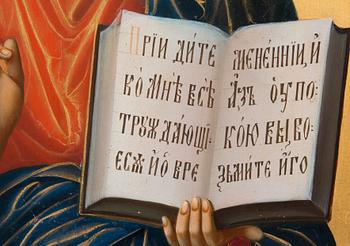 Прїи дите
ко мнѣ всѣ
трꙋждающї
есѧ и҆ ѡ҆бре
мененнїи, и҆
а҆зъ оупо
кою вы, во
зьмите и҆го